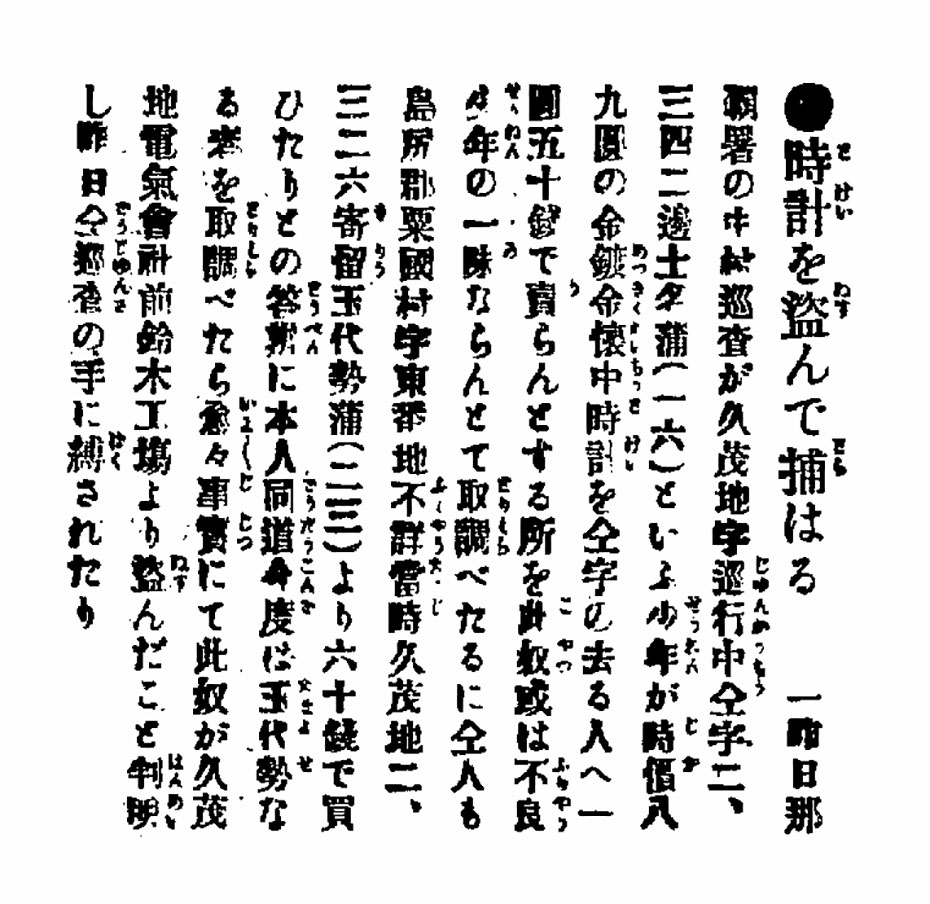 ●時計を盗んで捕はる　一昨日那
覇署の中村巡査が久茂地字巡行中仝字二、
三四二邊土名蒲（一六）といふ少年が時價八
九圓の金鍍金懐中時計を仝字の去る人へ一
圓五十錢で賣らんとする所を此奴或は不良
少年の一味ならんとて取調べたるに仝人も
島尻郡粟國村字東番地不詳當時久茂地二、
三二六寄留玉代勢蒲（二三）より六十錢で買
ひたりとの答辯に本人同道今度は玉代勢な
る者を取調べたら愈々事實にて此奴が久茂
地電氣會社前鈴木工場より盗んだこと判明
し昨日仝巡査の手に縛されたり